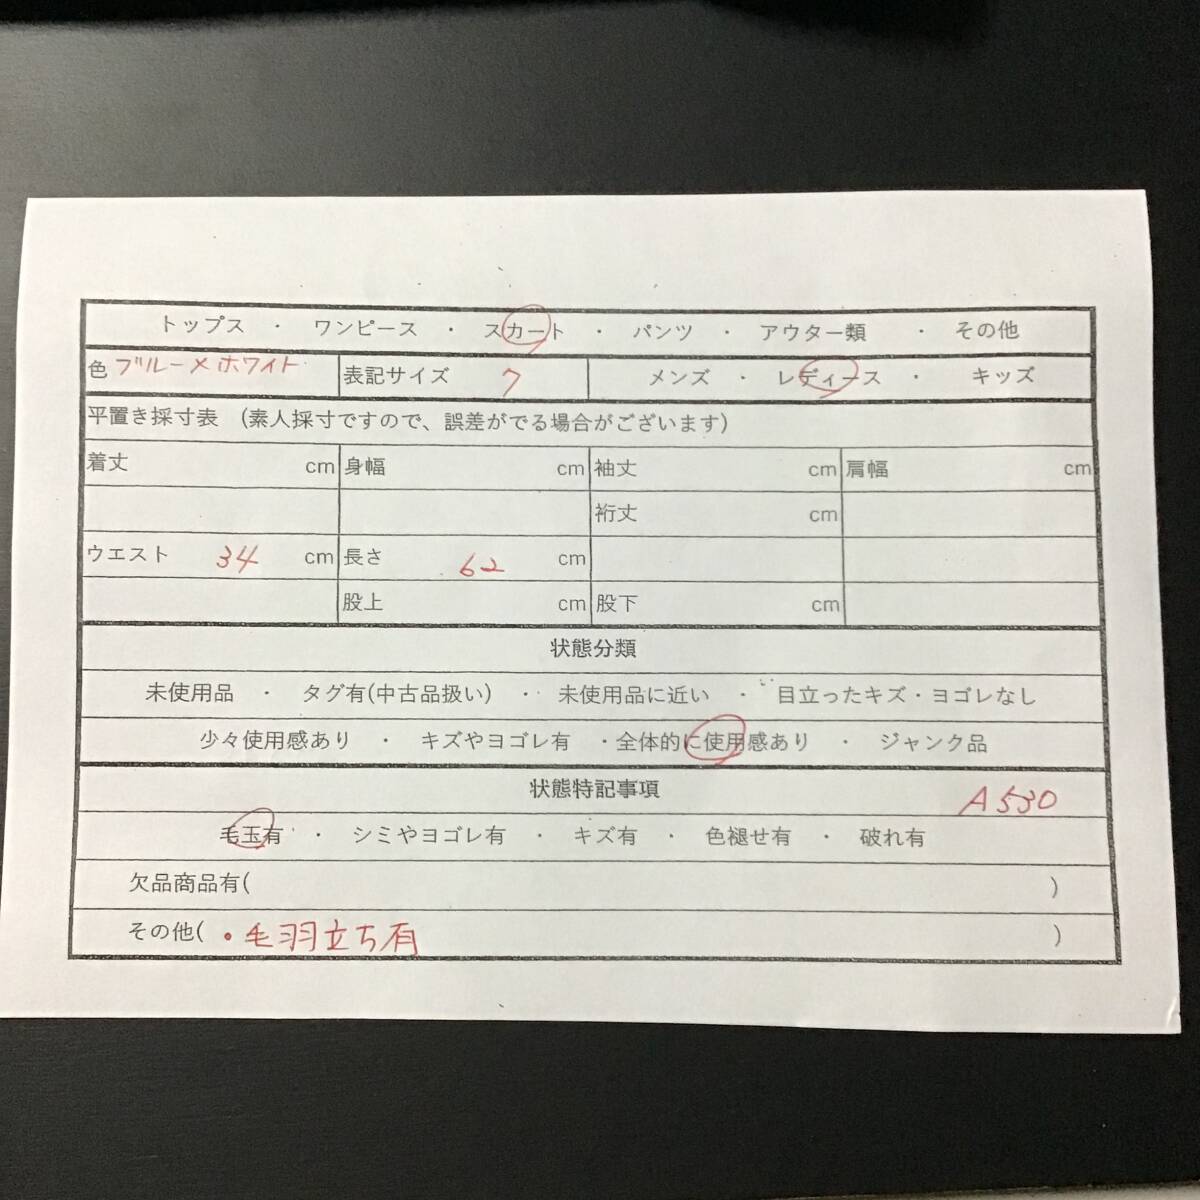 トップス ・ ワンピース ・ スカート ・ パンツ ・ アウター類 ・ その他
色 ブルー×ホワイト 表記サイズ 7 メンズ ・ レディース ・ キッズ
平置き採寸表 (素人採寸ですので、誤差がでる場合がございます)
着丈 cm 身幅 cm 袖丈 cm 肩幅 cm
裄丈 cm
ウエスト 34 cm 長さ 62 cm
股上 cm 股下 cm
状態分類
未使用品 ・ タグ有(中古品扱い) ・ 未使用品に近い ・ 目立ったキズ・ヨゴレなし
少々使用感あり ・ キズやヨゴレ有 ・全体的に使用感あり ・ ジャンク品
状態特記事項 A530
毛玉有 ・ シミやヨゴレ有 ・ キズ有 ・ 色褪せ有 ・ 破れ有
欠品商品有( )
その他( ・毛羽立ち有 )